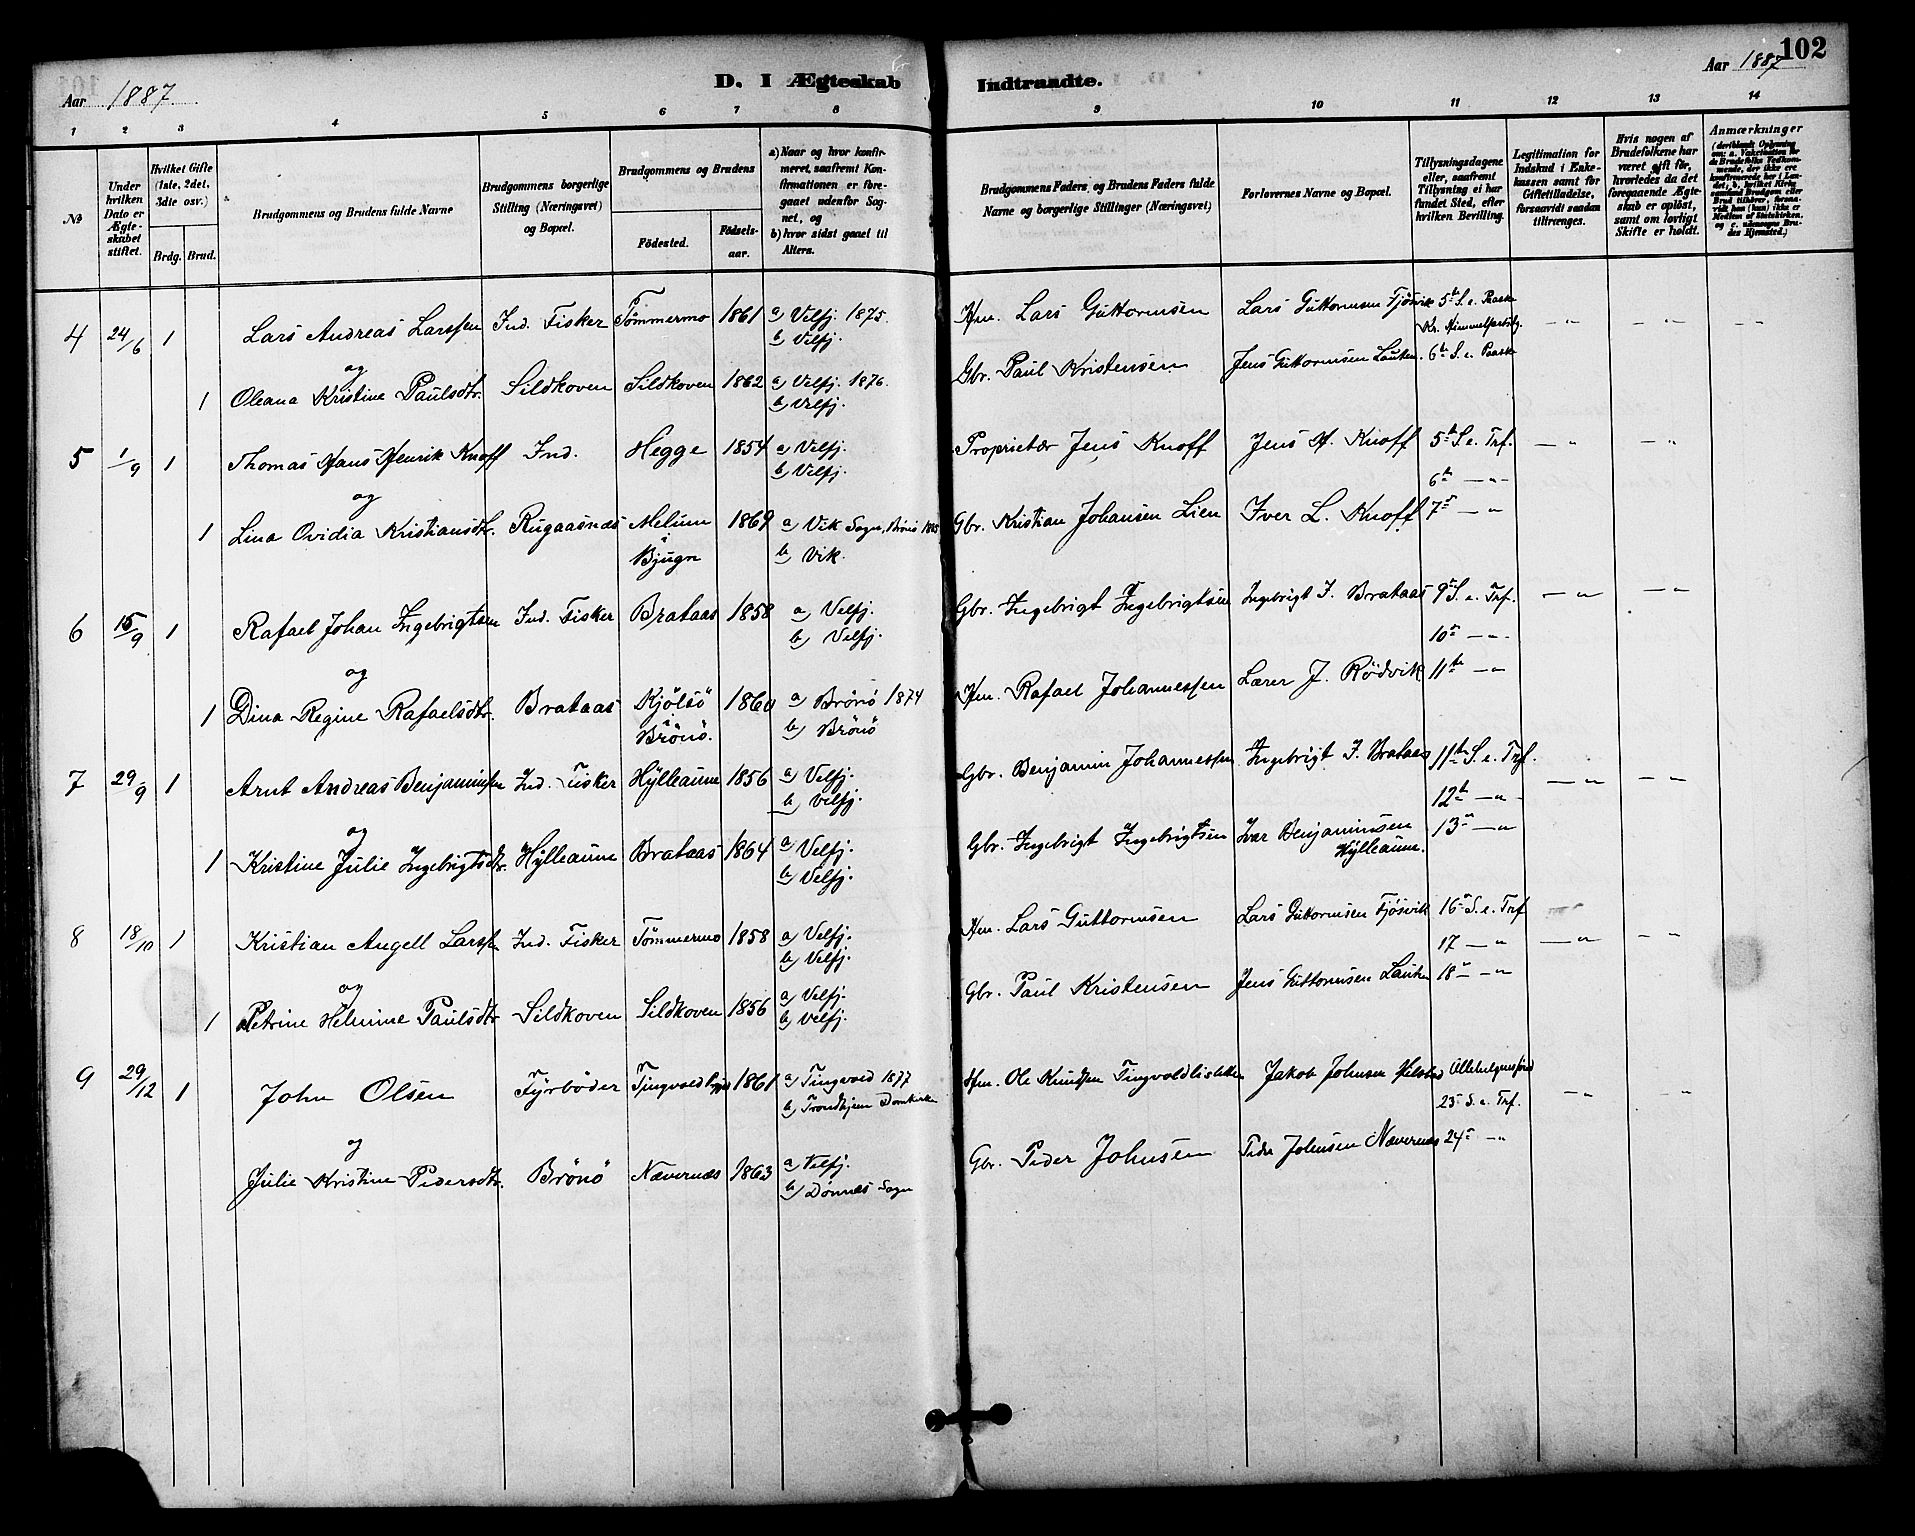 Aar 1887
D. I Ægteskab Indtraadte.
Aar 1887
102
1 2 3 4 5 6 7 8 9 10 11 12 13 14
No
Under hvilken Dato er Ægteskabet stiftet.
Hvilket Gifte (1ste, 2det, 3die osv.)
Brdg. Brud.
Brudgommens og Brudens fulde Navne
Brudgommens borgerlige Stilling (Næringsvei) og Bopæl.
Brudgommens og Brudens
Födested. Födselsaar.
a) Naar og hvor konfirmeret, saafremt Konfirmationen er foregaaet udenfor Sognet, og
b) hvor sidst gaaet til Alters.
Brudgommens Faders, og Brudens Faders fulde Navne og borgerlige Stillinger (Næringsvei)
Forlovernes Navne og Bopæl.
Tillysningsdagene eller, saafremt Tillysning ei har fundet Sted, efter hvilken Bevilling.
Legitimation for Indskud i Enkekassen samt for Giftetilladelse, forsaavidt saadan tiltrænges.
Hvis nogen af Brudefolkene har været gift för, hvorledes da det foregaaende Ægteskab er oplöst, samt om lovligt Skifte er holdt.
Anmærkninger
4 24/6 1 Lars Andreas Larssen Ind. Fisker Tömmermo 1861 a) Velfj. 1875. b) Velfj. Hm. Lars Guttormsen Lars Guttormsen Fjösvik 5te S. e. Paaske Kr. Himmelfartsdg. — " — " — "
og
1 Oleana Kristine Paulsdtr. Sildkoven Sildkoven 1862 a) Velfj. 1876. b) Velfj. Gbr. Paul Kristensen Jens Guttormsen 6te S. e. Paaske
5 1/9 1 Thomas Hans Henrik Knoff Ind. Hegge 1854 a) Velfj. b) Velfj. Proprietær Jens Knoff Jens H. Knoff 5te S. e. Trf. — " — "
6te — "
og
1 Lina Ovidia Kristiansdtr. Rugaasnæs Melum i Bjugn 1869 a) Vik Sogn, Brönö b) Vik. Gbr. Kristian Johansen Lien Iver L. Knoff 7de — "
6 15/9 1 Rafael Johan Ingebrigtsen Ind. Fisker Brataas 1858 a) Velfj. b) Velfj. Gbr. Ingebrigt Ingebrigtsen Ingebrigt I. Brataas 9de S. e. Trf. — " — "
10de — "
og
1 Dina Regine Rafaelsdtr. Brataas Kjölsö i Brönö. 1860 a) Brönö 1874 b) Brönö Hm. Rafael Johannessen Lærer J. Rödvik 11te — "
7 29/9 1 Arnt Andreas Benjaminsen Ind. Fisker Hylleaune 1856 a) Velfj. b) Velfj. Gbr. Benjamin Johannessen Ingebrigt I. Brataas 11te S. e. Trf. — " — "
12te — "
og
1 Kristine Julie Ingebrigtsdtr. Hylleaune Brataas 1864 a) Velfj. b) Velfj. Gbr. Ingebrigt Ingebrigtsen Ivar Benjaminsen Hylleaune. 13de — "
8 18/10 1 Kristian Angell Larssen Ind. Fisker Tömmermo 1858 a) Velfj. b) Velfj. Hm. Lars Guttormsen Lars Guttormsen Fjösvik 16de S. e. Trf.
17 — " — " — "
og
1 Petrine Helmine Paulsdtr Sildkoven Sildkoven 1856 a) Velfj. b) Velfj. Gbr. Paul Kristensen Jens Guttormsen 18de — "
9 29/12 1 John Olsen Fyrböder 1861 a) Tingvold 1877 b) Trondhjem Domkirke Hm. Ole Knudsen Jakob Johnsen
23de S. e. Trf. — " — "
og
Julie Kristine Pedersdtr. Brönö Nævernæs 1863 a) Velfj. b) Dönnes Sogn Gbr. Peder Johnsen Peder Johnsen Nævernæs 24de — "